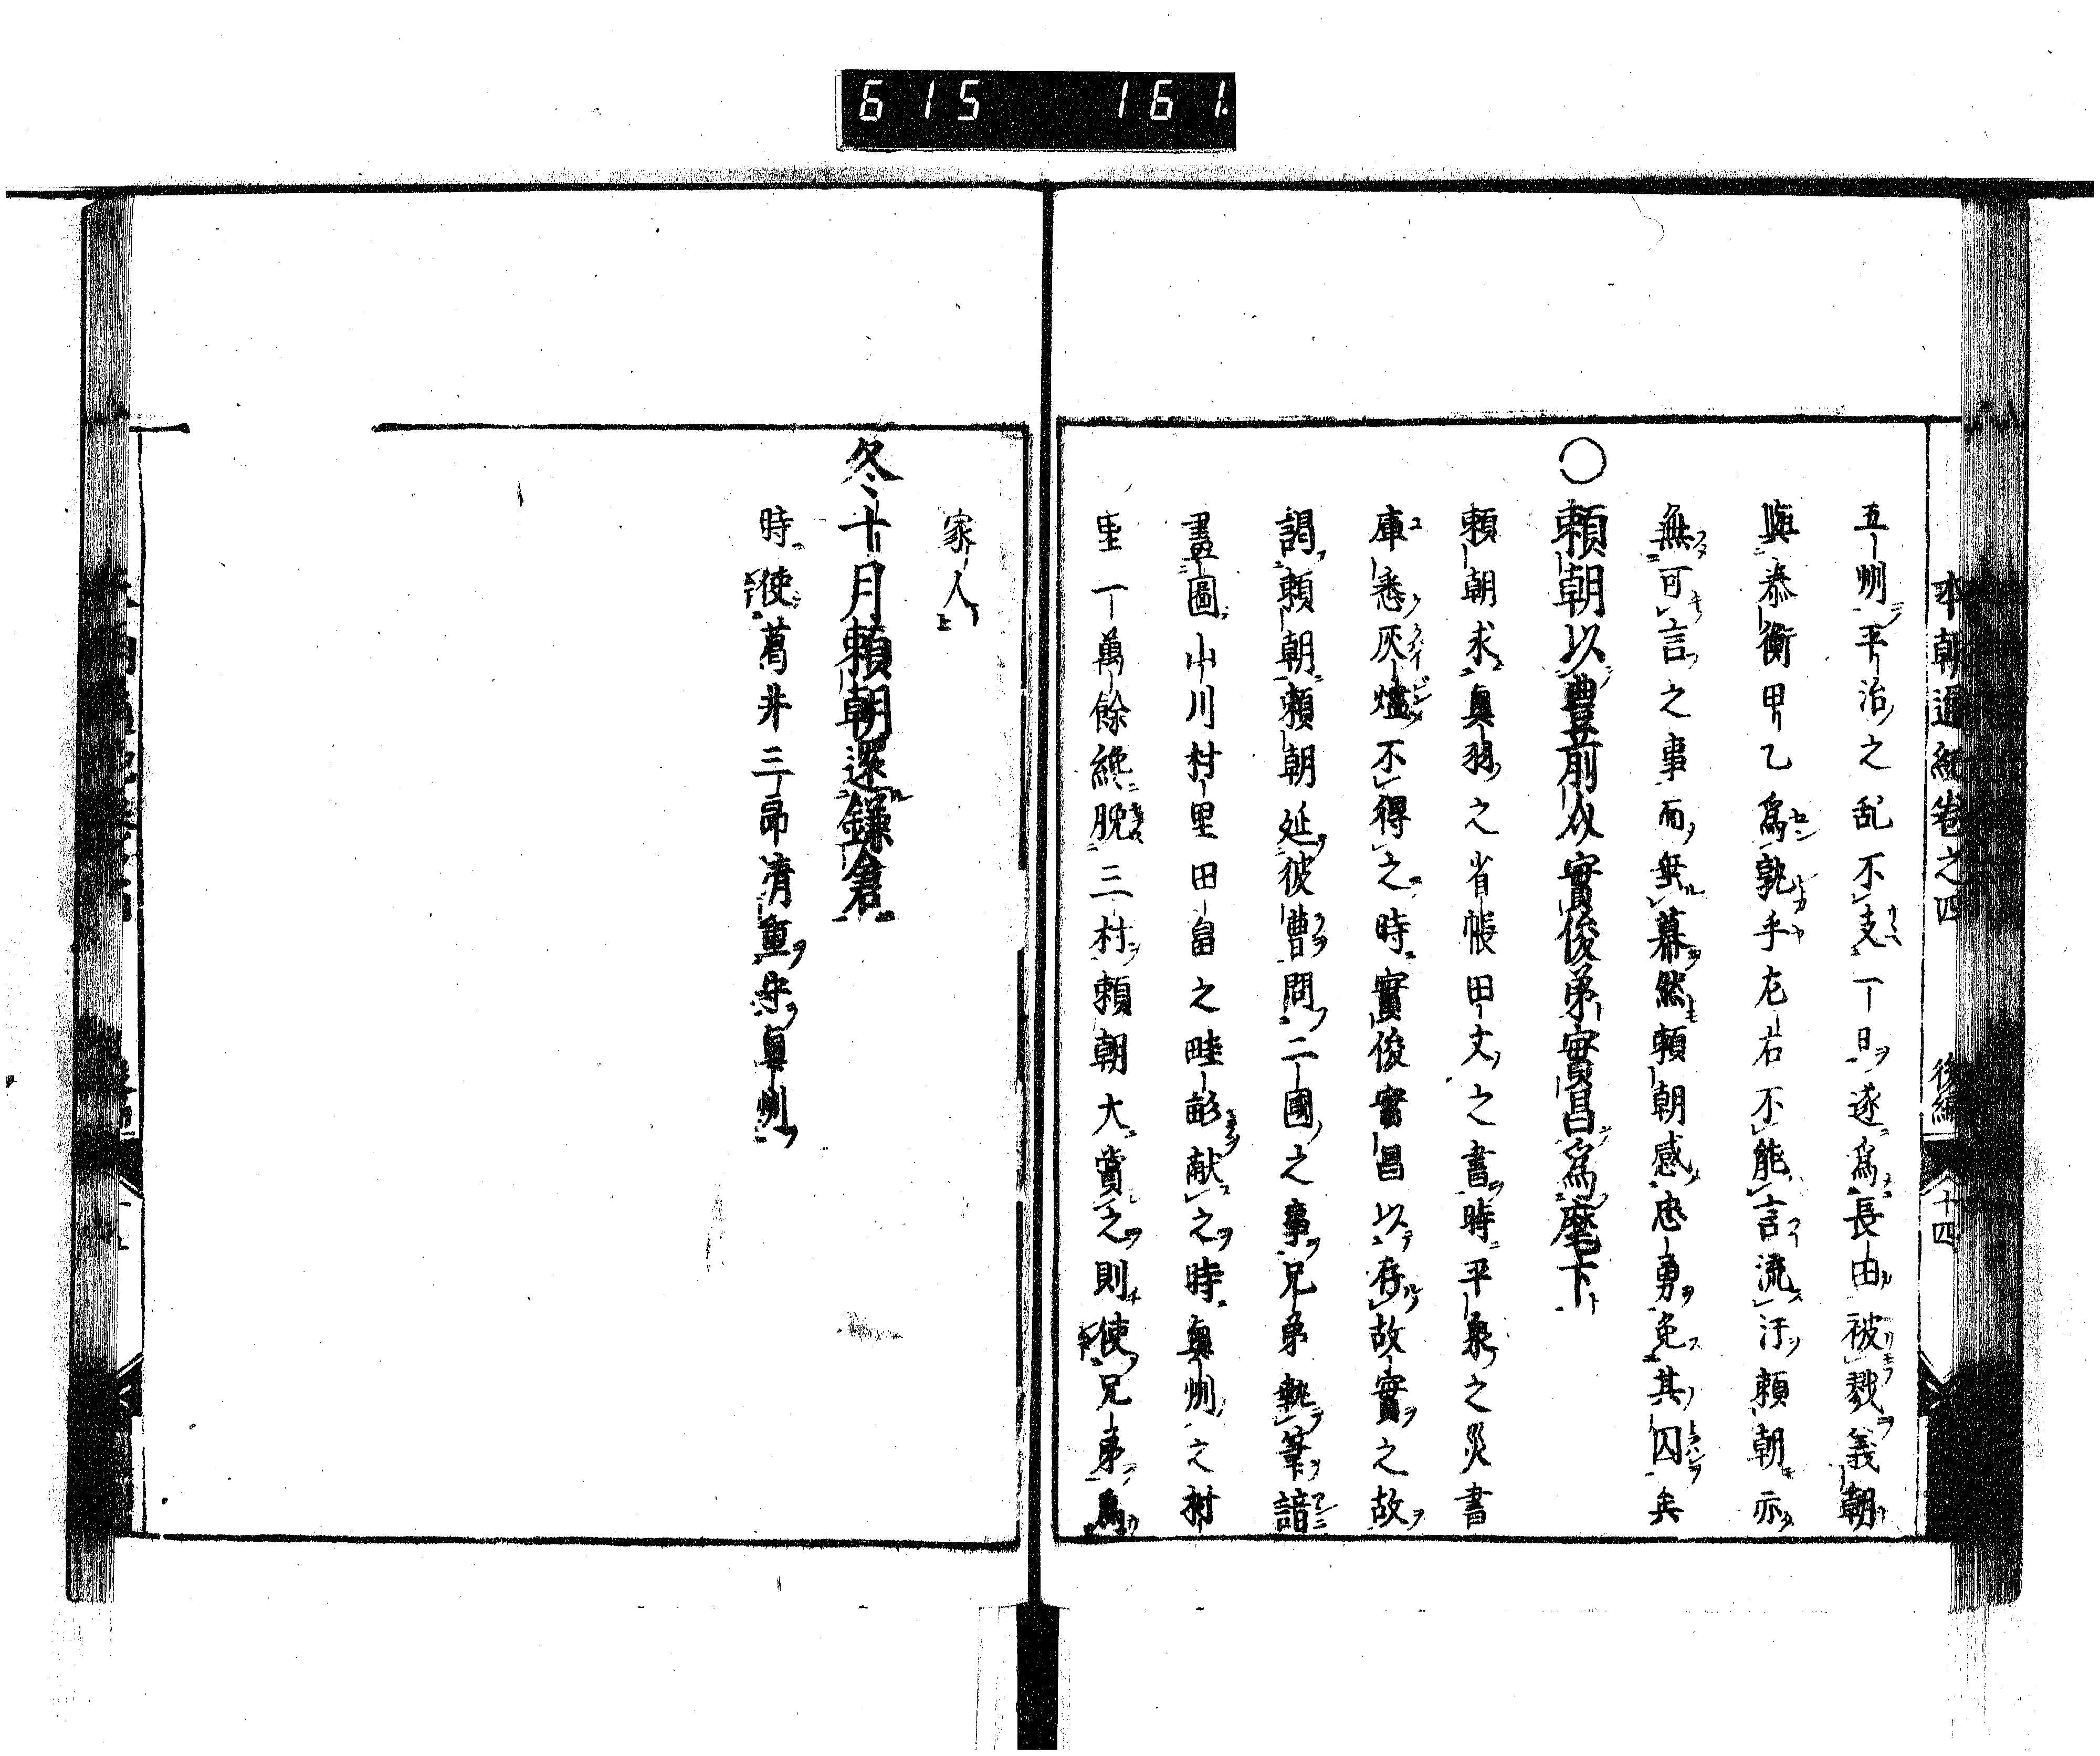 615 161
本朝通紀卷之四 後編 十四
五州平治之乱不支一旦遂爲長由被戮義朝
與泰衡甲乙爲孰乎左右不能言流汗頼朝亦
無可言之事而無慕然頼朝感忠勇免其囚矣
○頼朝以豊前介實俊弟實昌爲麾下
頼朝求奥羽之省帳田文之書時平泉之災書
庫悉灰燼不得之時實俊實昌以存故實之故
謁頼朝頼朝延彼曹問二國之事兄弟執筆諳
畫圖山川村里田畠之畦畝献之時奥州之村
里一萬餘纔脫三村頼朝大賞之則使兄弟爲
家人
冬十月頼朝還鎌倉
時使葛井三郎清重守奥州